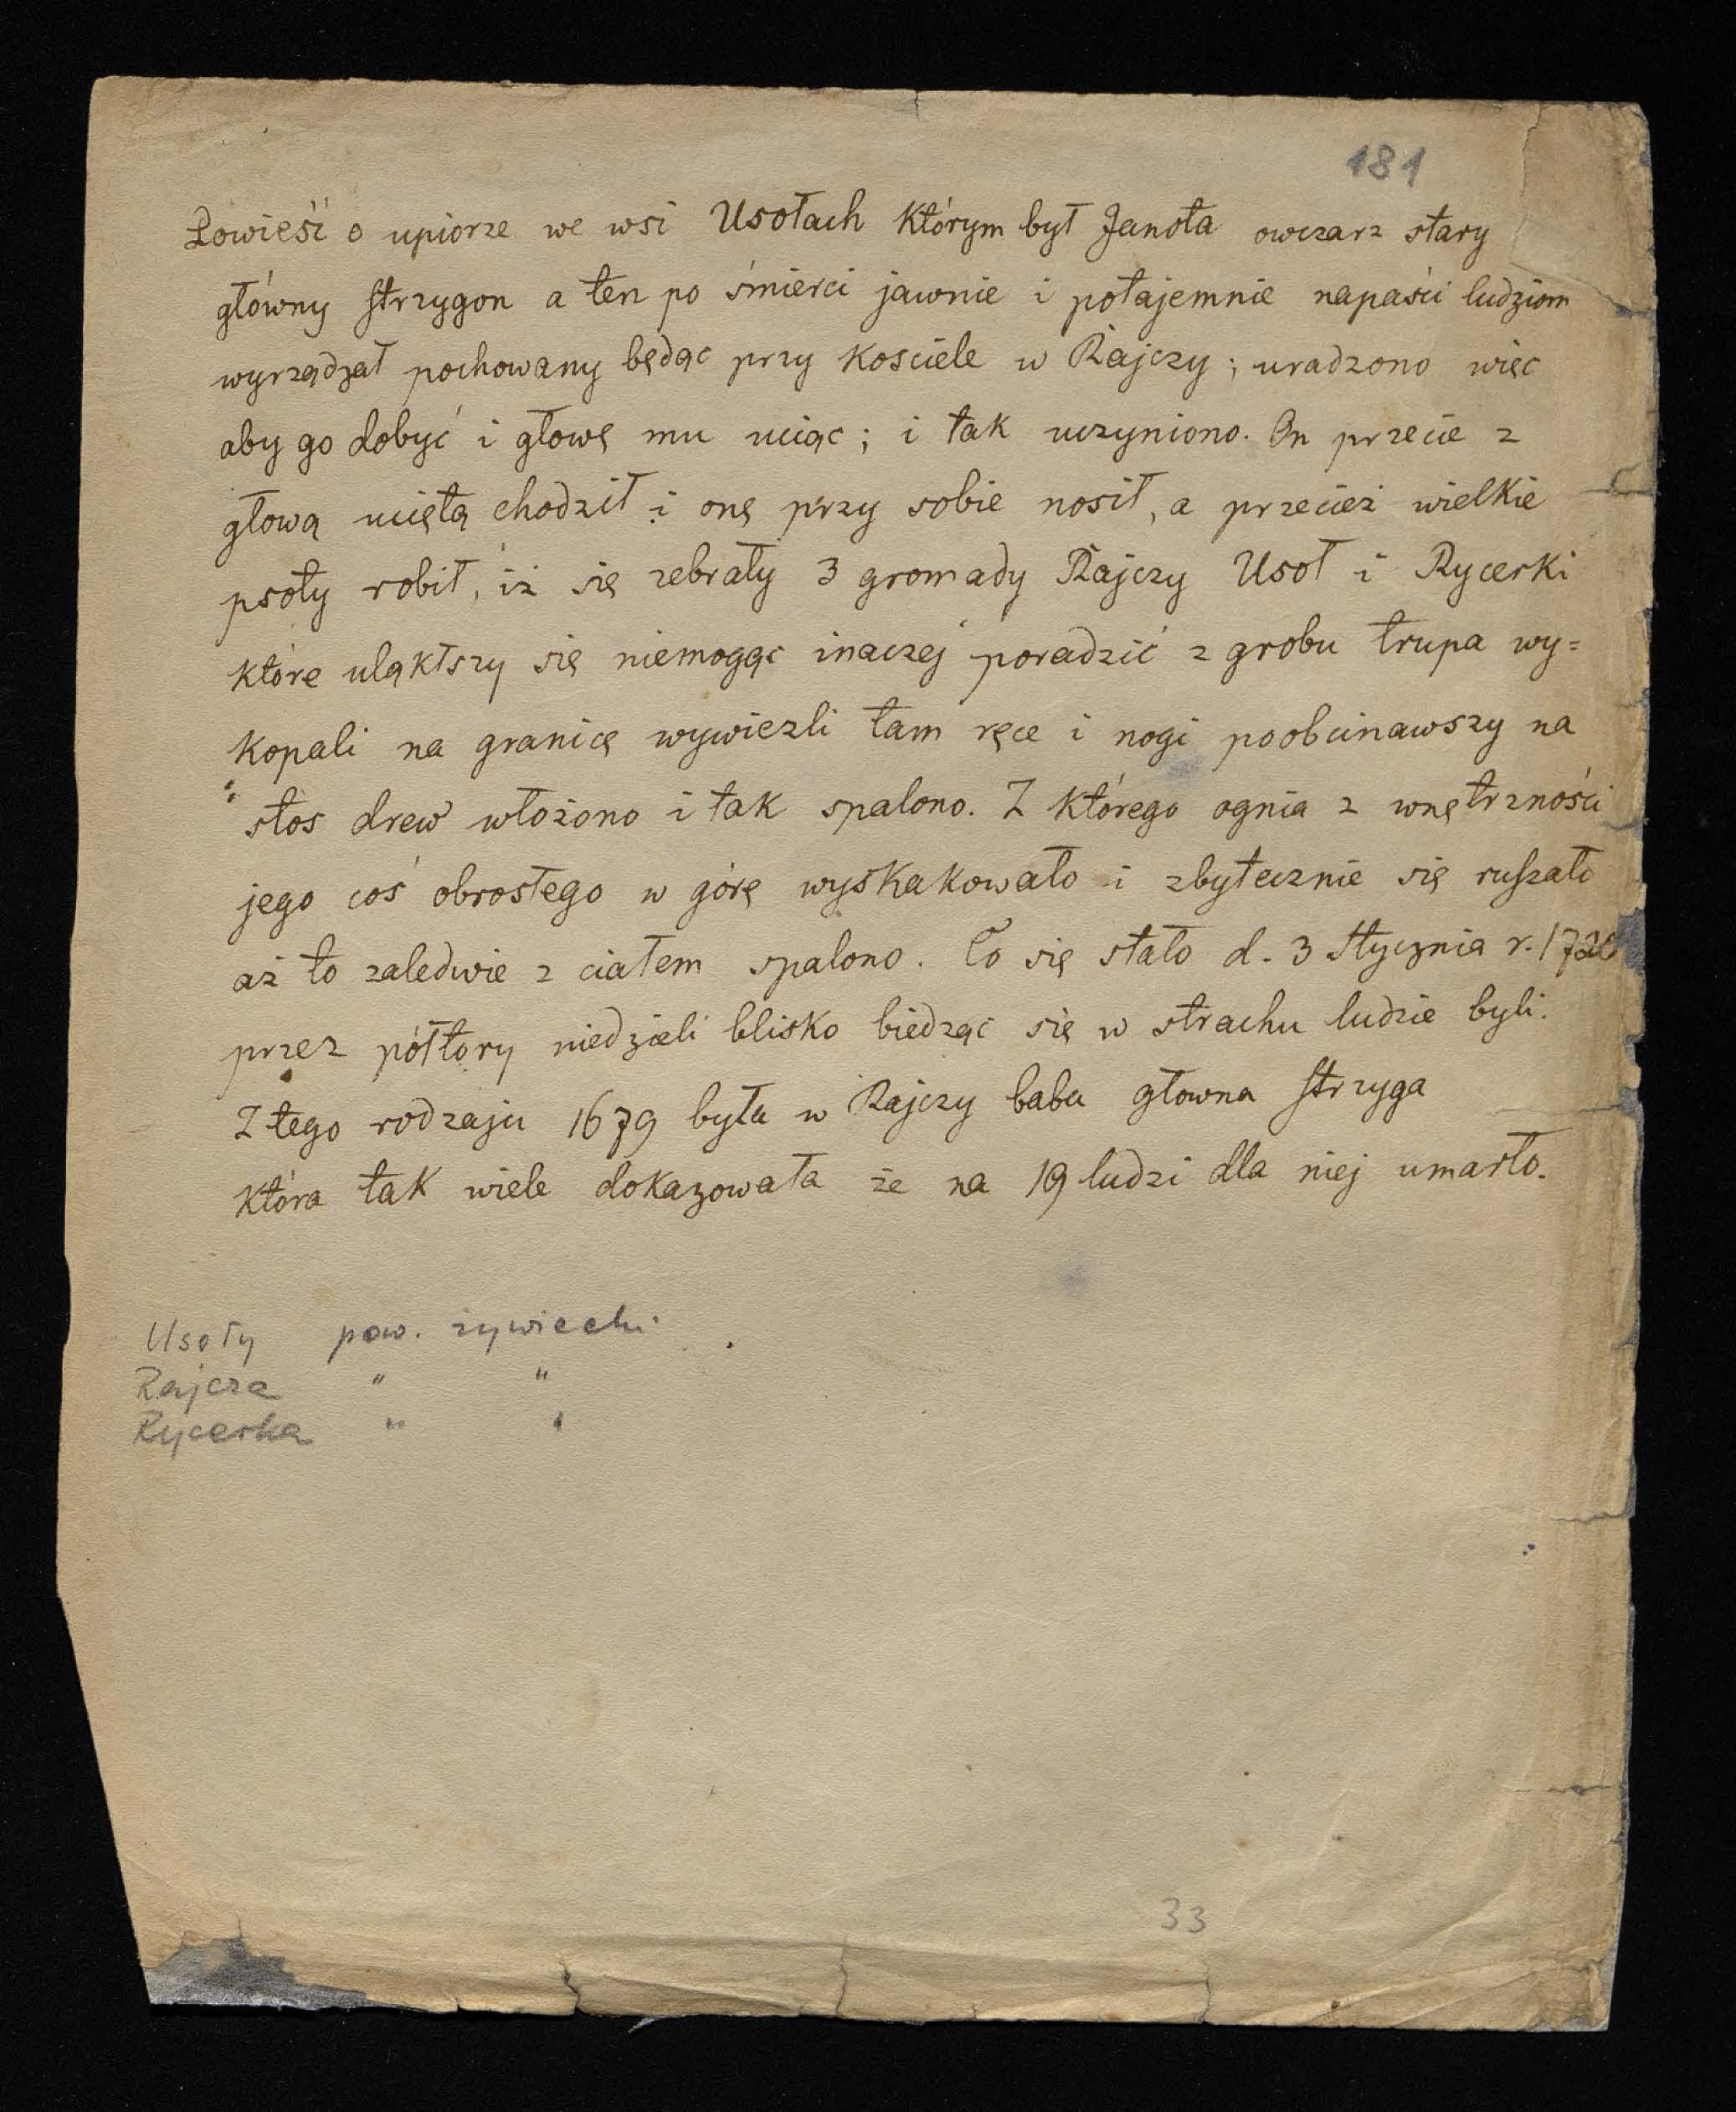 181
Powieść o upiorze we wsi Usołach którym był Janota owczarz stary
główny strzygon a ten po śmierci jawnie i potajemnie napaści ludziom
wyrządzał pochowany będąc przy kosciele w Rajczy; uradzono więc
aby go dobyć i głowę mu uciąc; i tak uczyniono. On przecie z
głową uciętą chodził i onę przy sobie nosił, a przecież wielkie
psoty robił, iż się zebrały 3 gromady Rajczy Usoł i Rycerki
które uląkłszy się niemogąc inaczej poradzić z grobu trupa wy=
kopali na granicę wywiezli tam ręce i nogi poobcinawszy na
stos drew włożono i tak spalono. Z którego ognia z wnętrzności
jego coś obrosłego w górę wyskakowało i zbytecznie się ruszało
aż to zaledwie z ciałem spalono. To się stało d. 3 Stycznia r.
przez półtory niedzieli blisko biedząc się w strachu ludzie byli.
Z tego rodzaju 1679 była w Rajczy baba głowna strzyga
która tak wiele dokazowała że na 19 ludzi dla niej umarło.
Usoły pow. żywiecki
Rajcza " "
Rycerka " "
33